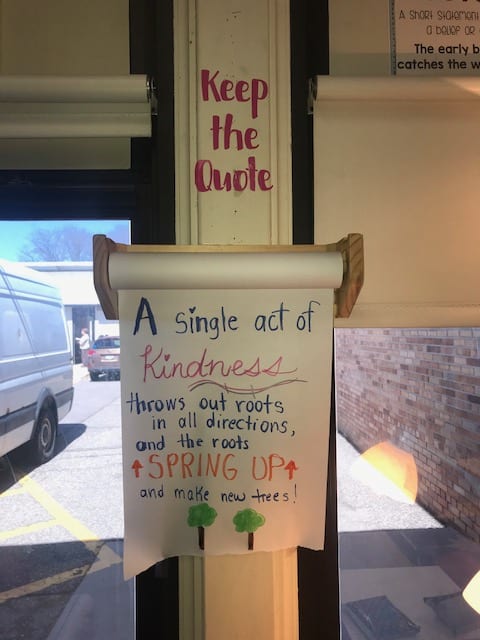 Keep
the
Quote
A Single act of
Kindness
throws out roots
in all directions,
and the roots
↑SPRING UP↑
and make new trees!
A SHORT STATEMENT
a belief or
The early b
catches the w